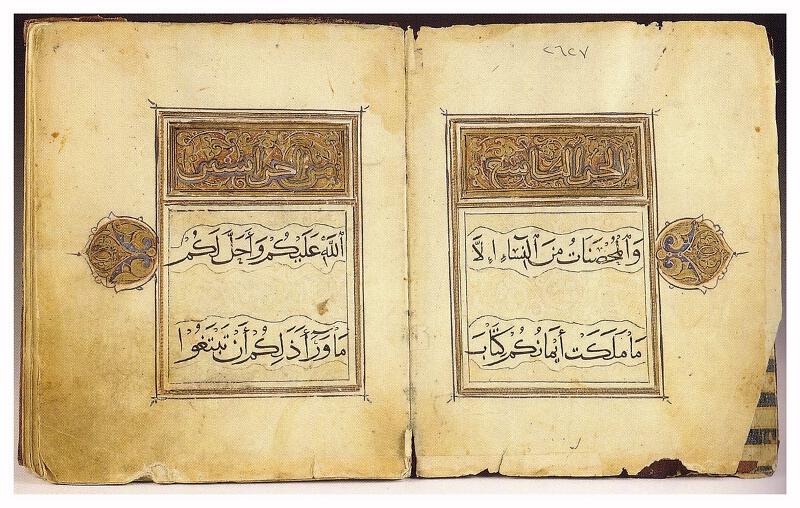 ٢٦٢٧
الجزء التاسع
وَالْمُحْصَنَاتُ مِنَ النِّسَاءِ إِلَّا
مَا مَلَكَتْ أَيْمَانُكُمْ كِتَابَ
من اجزا ستين
اللَّهِ عَلَيْكُمْ وَأُحِلَّ لَكُمْ
مَا وَرَآءَ ذَلِكُمْ أَنْ تَبْتَغُوا